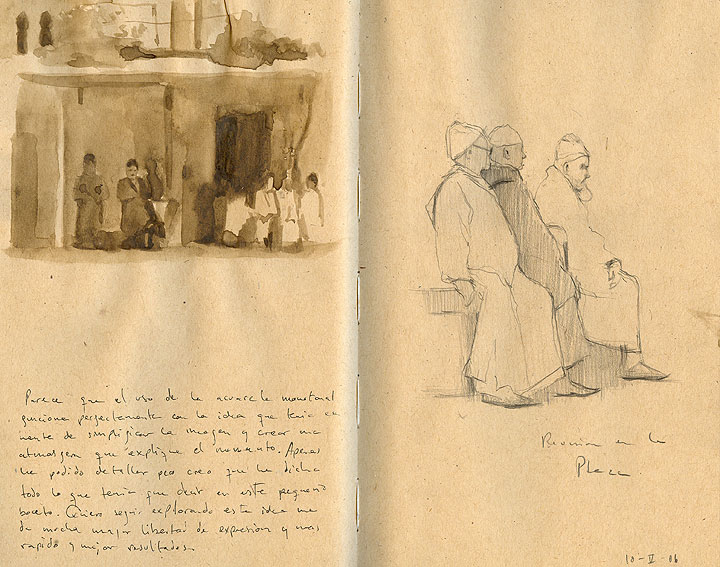 Parece que el uso de la acuarela monotonal
funciona perfectamente con la idea que tenia en
mente de simplificar la imagen y crear una
atmosfera que explique el momento. Apenas
he podido detallar pero creo que he dicho
todo lo que tenia que decir en este pequeño
boceto. Quiero seguir explorando esta idea me
da mucha mayor libertad de expresion y mas
rapido y mejor resultados.
Reunion en la
Plaza
10-V-06